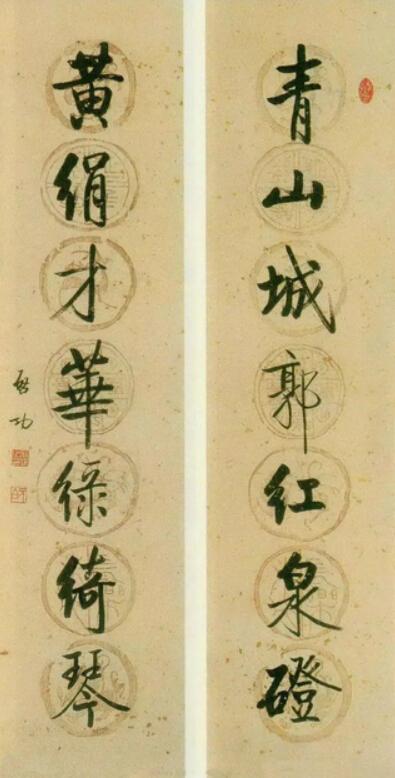 青山城郭红泉磴
黄绢才华绿绮琴
启功